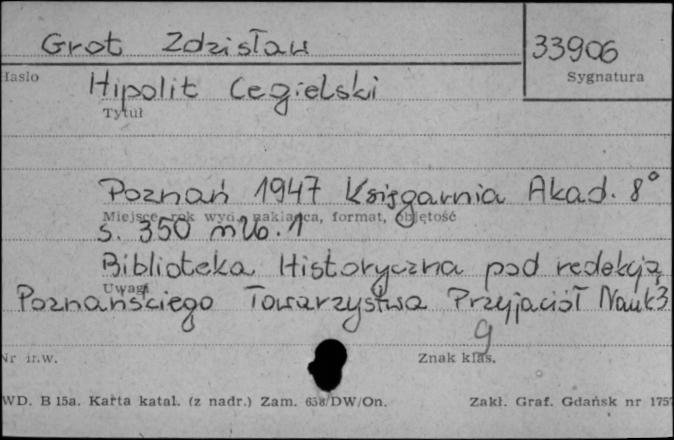 Grot Zdzisław 33906
Hasło Sygnatura
Hipolit Cegielski
Tytuł
Poznań 1947 Księgarnia Akad. 8°
Miejsce, rok wyd., nakładca, format, objętość
s. 350 nlb. 1
Biblioteka Historyczna pod redakcją
Uwagi
Poznańskiego Towarzystwa Przyjaciół Nauk 3
9
Nr inw. Znak klas.
WD. B 15a. Karta katal. (z nadr.) Zam. 638/DW/On. Zakł. Graf. Gdańsk nr 175